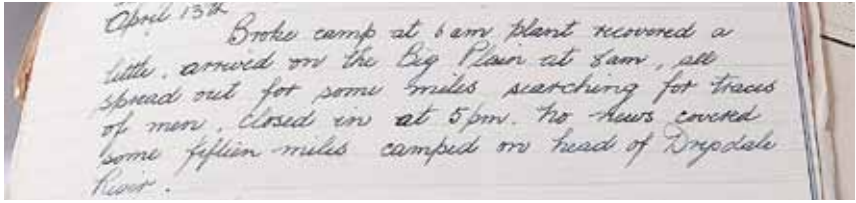 April 13th
Broke camp at 6 am plant recovered a
little. arrived on the Big Plain at 8am, all
spread out for some miles searching for traces
of men. closed in at 5pm. no news covered
some fifteen miles camped on head of Drysdale
River.